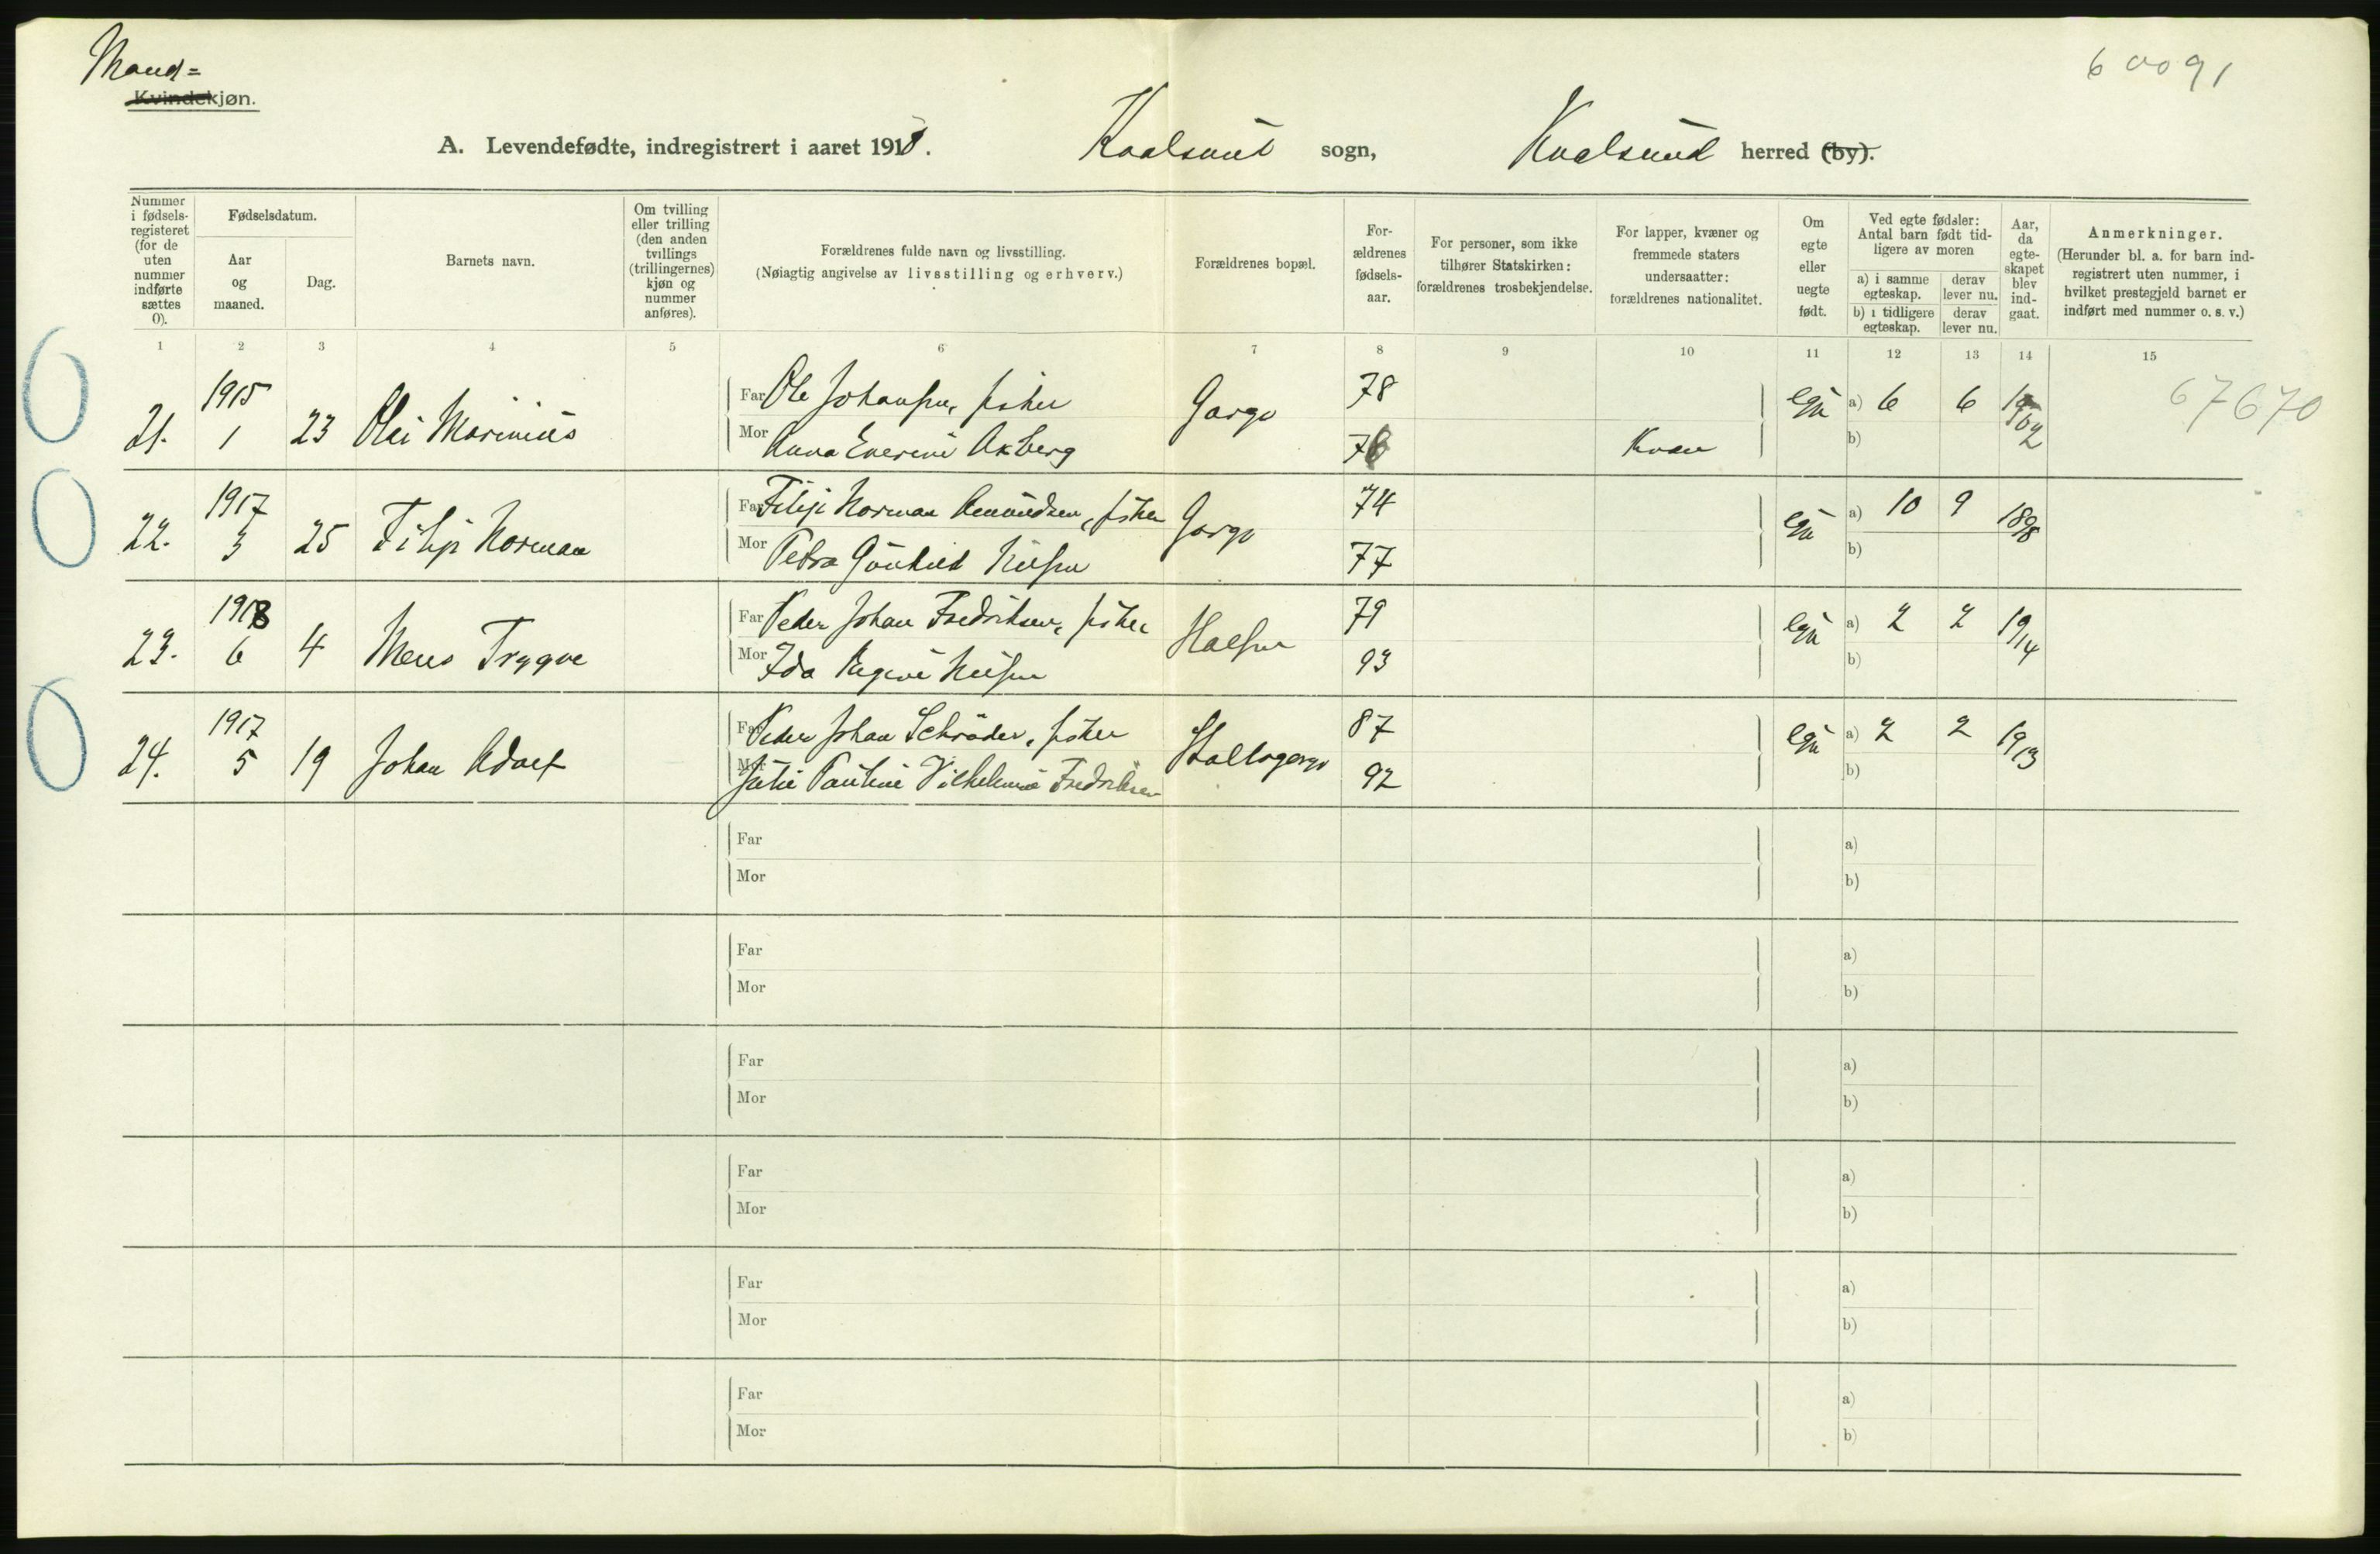 Mand=
Kvindekjøn.
6 0091
A. Levendefødte, indregistrert i aaret 1918. Kvalsund sogn, Kvalsund herred (by).
Nummer i fødsels-registeret (for de uten nummer indførte sættes 0).
Fødselsdatum.
Aar og maaned.
Dag.
Barnets navn.
Om tvilling eller trilling (den anden tvillings (trillingernes) kjøn og nummer anføres).
Forældrenes fulde navn og livsstilling.
(Nøiagtig angivelse av livsstilling og erhverv.)
Forældrenes bopæl.
For-ældrenes fødsels-aar.
For personer, som ikke tilhører Statskirken: forældrenes trosbekjendelse.
For lapper, kvæner og fremmede staters undersaatter: forældrenes nationalitet.
Om egte eller uegte født.
Ved egte fødsler: Antal barn født tid-ligere av moren
a) i samme egteskap.
derav lever nu.
b) i tidligere egteskap.
derav lever nu.
Aar, da egte-skapet blev ind-gaat.
Anmerkninger.
(Herunder bl. a. for barn ind-registrert uten nummer, i hvilket prestegjeld barnet er indført med nummer o. s. v.)
1 2 3 4 5 6 7 8 9 10 11 12 13 14 15
21. 1915 1 23 Olai Marinius
Far Ole Johansen, fisker Gargo 78 egte a) 6 6 1902 67670
Mor Anna Everine Akberg 76 Kvæn b)
22. 1917 3 25 Filip Norman
Far Filip Norman Amundsen, fisker Gargo 74 egte a) 10 9 1898
Mor Petra Gunhild Nilsen 77 b)
23. 1918 6 4 Mens Trygve
Far Peder Johan Fredriksen, fisker 79 egte a) 2 2 1914
Mor Ida Nilsen 93 b)
24. 1917 5 19 Johan Adolf
Far Peder Johan Schrøder, fisker Stallogargo 87 egte a) 2 2 1913
Mor Julie Pauline Vilhelmine Fredriksen 92 b)
Far a)
Mor b)
Far a)
Mor b)
Far a)
Mor b)
Far a)
Mor b)
Far a)
Mor b)
Far a)
Mor b)